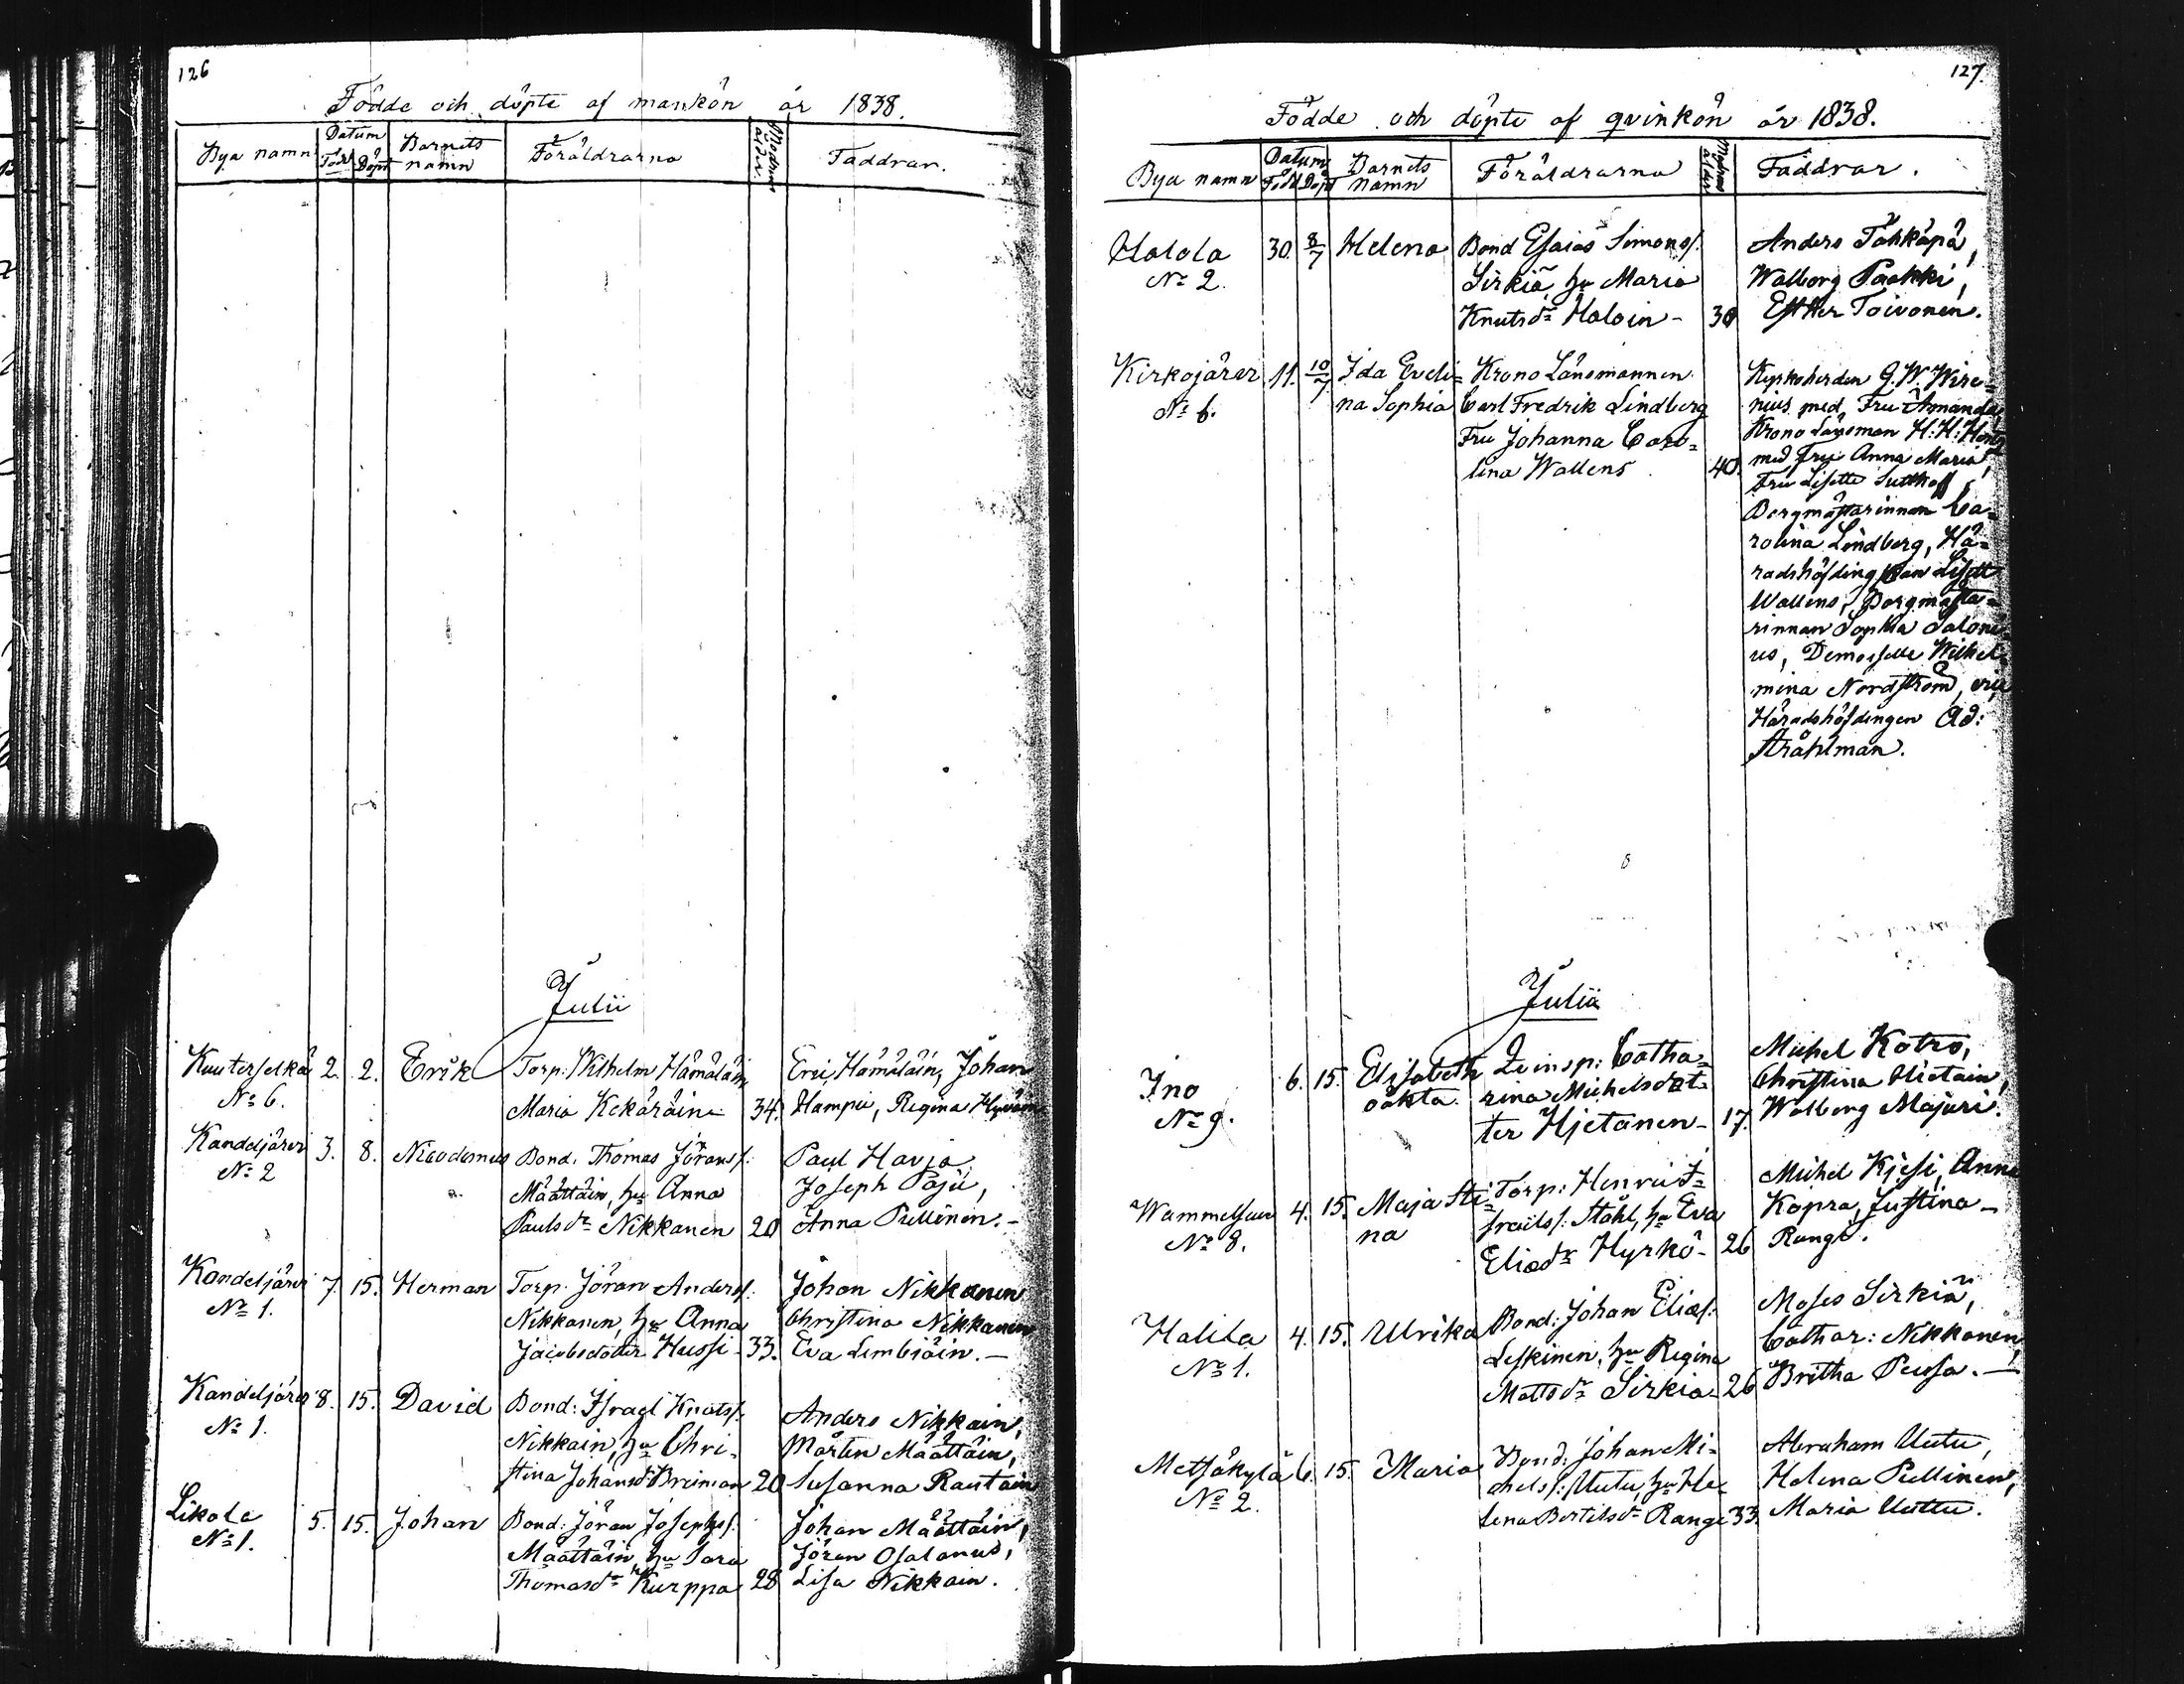 126
Födde och döpte af mankön år 1838.
Bya namn
Datum
Född Döpt
Barnets namn
Föräldrarna
Modrens ålder
Faddrar.
Julii
Kuuterselkä 2. 2. Erik Torp: Wilhelm Hämäläin Eric Hämäläin, Johan
No 6. Maria Kekäräin 34. Hampu, Regina
Kandeljärvi 3. 8. Nicodemus Bond. Thomas Jöranss. Paul Harja
No 2 Määttäin, hu Anna Joseph Paju,
Paulsdr Nikkanen 20 Anna Pullinen.
Kandeljärvi 7. 15. Herman Torp. Jöran Anderss. Johan Nikkanen
No 1. Nikkanen, hu Anna Christina Nikkanen
Jacobsdotter Hussi 33. Eva Lembiäin.
Kandeljärvi 8. 15. David Bond: Israel Knutss. Anders Nikkain,
No 1. Nikkain, hu Chri- Mårten Määttäin,
stina Johansdr Breiman 20 Susanna Rautain
Likola 5. 15. Johan Bond: Jöran Josephss. Johan Määttäin,
No 1. Määttäin, hu Sara Jöran Osalanus,
Thomasdr Kurppa 28 Lisa Nikkain.
127.
Födde och döpte af qvinkön år 1838.
Bya namn
Datum
Född Döpt
Barnets namn
Föräldrarna
Modrens ålder
Faddrar.
Halola 30. 8/7 Helena Bond Esaias Simonss. Anders Tähkäpä,
No 2. Sirkiä, hu Maria Walborg Paakki,
Knutsdr Haloin - 30 Esther Toivonen.
Kirkojärvi 11. 10/7 Ida Eveli= Krono Länsmannen Kyrkoherden G. W. Wire=
No 6. na Sophia Carl Fredrik Lindberg nius med Fru Amanda,
Fru Johanna Caro= Krono Länsman H: H:
lina Wallens 40. med Fru Anna Maria,
Fru Lisette Sutthoff,
Borgmästarinnan Ca=
rolina Lindberg, Hä=
radshöfdingskan Lisette
Wallens, Borgmästa=
rinnan Sophia Saloni=
us, Demoiselle Wilhel=
mina Nordström,
Häradshöfdingen Ad:
Stråhlman.
Julii
Ino 6. 15. Elisabeth Qvinsp: Catha= Michel Kotro,
No 9. oäkta rina Michelsdot= Christina Hietain,
ter Hjetanen - 17. Walborg Majuri.
Wammelsuu 4. 15. Maja Sti= Torp: Henric I= Michel Kjesi, Anna
No 8. na sraelss: Ståhl, hu Eva Kopra, Justina -
Eliædr Hyrkö - 26 Range.
Halila 4. 15. Ulrika Bond: Johan Eliæs. Moses Sirkiä,
No 1. Leskinen, hu Regina Cathar: Nikkanen,
Mattsdr Sirkiä 26 Britha Peussa.
Metsäkylä 6. 15. Maria Bond: Johan Mi= Abraham Uutu,
No 2. chelss: Uutu, hu He= Helena Pullinen,
lena Bertilsdr Range 33. Maria Uuttu.